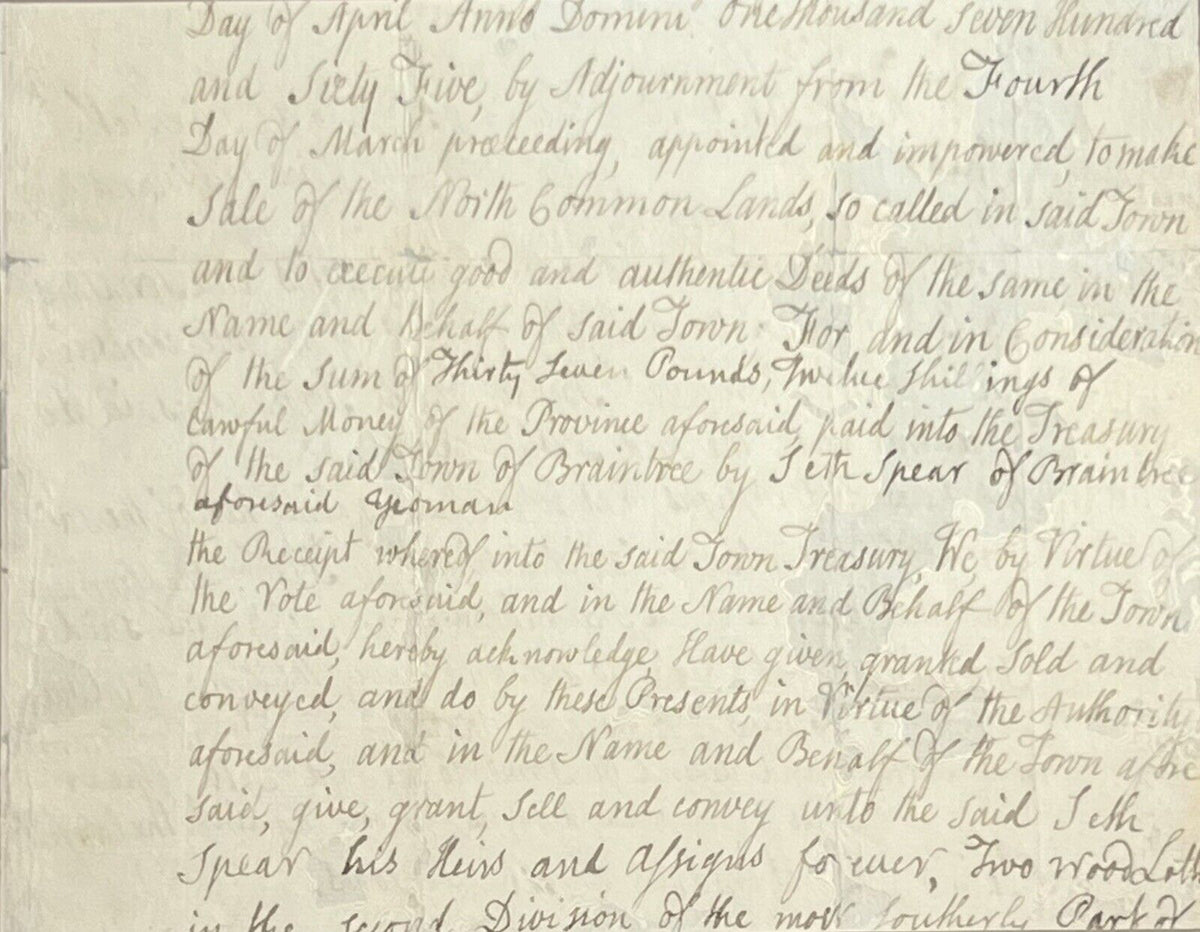 Day of April Anno Domini One thousand Seven Hundred
and Sixty Five, by Adjournment from the Fourth
Day of March preceeding, appointed and impowered, to make
Sale of the North Common Lands, so called in said Town
and to execute good and authentic Deeds of the same in the
Name and Behalf of said Town. For and in Consideration
of the Sum of Thirty Seven Pounds, Twelve Shillings of
Lawful Money of the Province aforesaid, paid into the Treasury
of the said Town of Braintree by Seth Spear of Braintree
aforesaid Yeoman
the Receipt whereof into the said Town Treasury, We, by Virtue of
the Vote aforesaid, and in the Name and Behalf of the Town
aforesaid, hereby acknowledge, Have given, granted Sold and
conveyed, and do by these Presents, in Virtue of the Authority
aforesaid, and in the Name and Behalf of the Town afore
said, give, grant, Sell and convey unto the said Seth
Spear his Heirs and Assigns for ever, Two Wood Lotts
in the second Division of the most southerly Part of